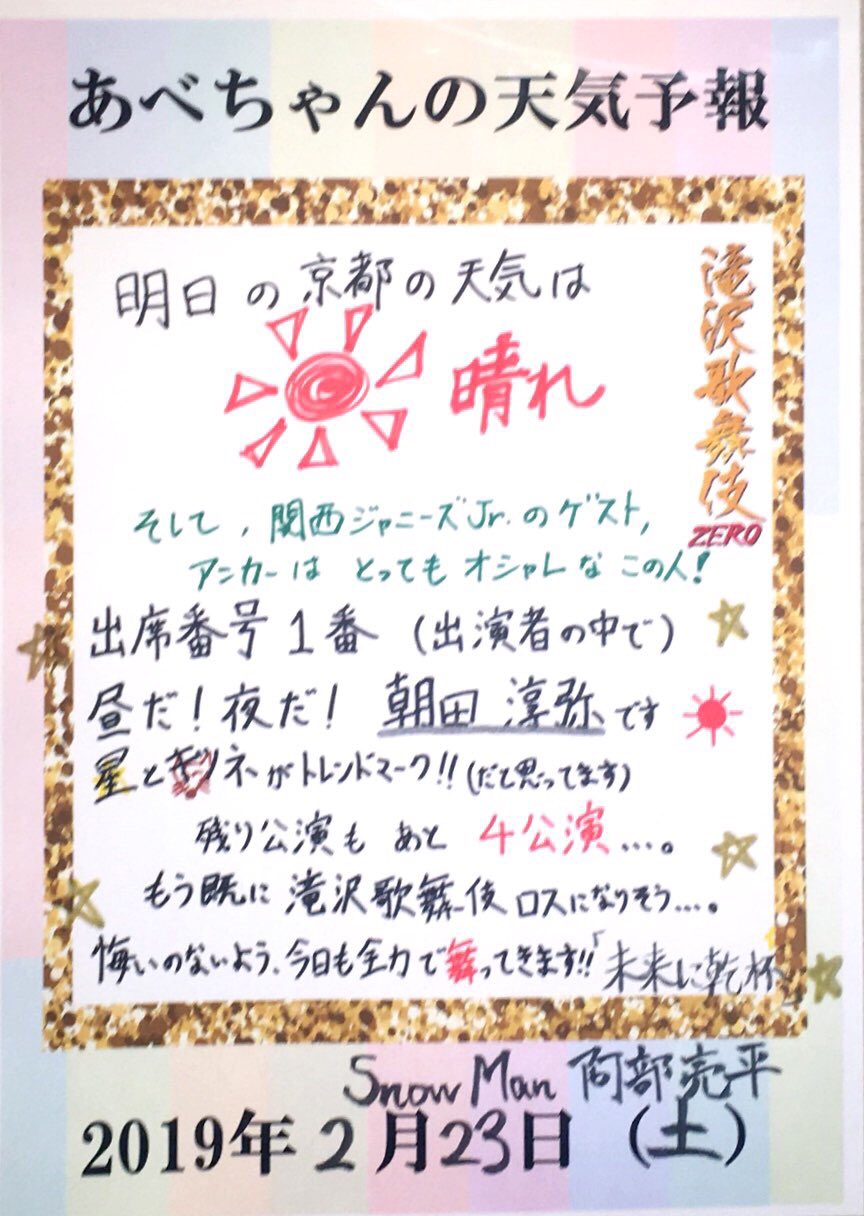 あべちゃんの天気予報
明日の京都の天気は
晴れ
滝沢歌舞伎
ZERO
そして、関西ジャニーズJr.のゲスト,
アンカーは とっても オシャレな この人!
出席番号1番 (出演者の中で)
昼だ!夜だ! 朝田 淳弥 です
星とキツネがトレンドマーク!!(だと思ってます)
残り公演も あと 4公演…。
もう既に 滝沢歌舞伎 ロスになりそう…。
悔いのないよう、今日も全力で舞ってきます!!「未来に乾杯」
Snow Man 阿部亮平
2019年2月23日(土)